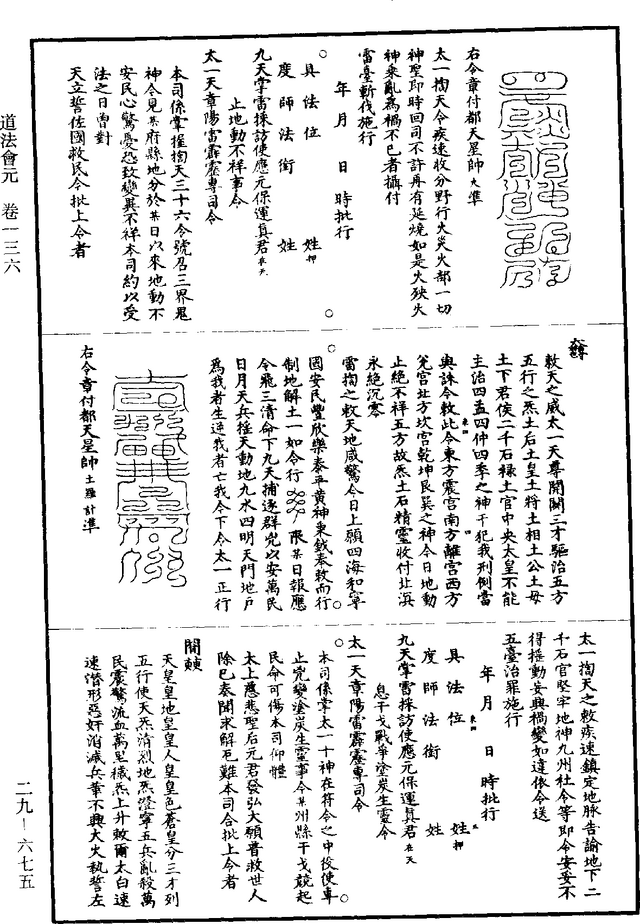 道法會元　卷一三六
二九—六七五
右令章付都天星師火準
太一掏天令疾速收分野行火炎火部一切
神聖即時回司不許再有延燒如是火殃失
神乘亂為禍不已者攝付
雷臺斬伐施行
年　月　日　時批行
具法位　姓押
度師法銜　姓
九天掌雷採訪使應元保運真君在天
止地動不祥事令
太一天章陽雷霹靂專司令
本司係掌握掏天三十六令號召三界鬼
神今見某府縣地分於某日以來地動不
安民心驚憂恐致變異不祥本司約以受
法之日曾對
天立誓佐國救民令批上令者
敕天之威太一天尊開闢三才驅治五方
五行之炁土后土皇土將土相土公土母
土下君侯二千石祿土官中央太皇不能
主治四孟四仲四季之神干犯我刑例當
與誅令敕此令東方震宮南方離宮西方
兌宮北方坎宮乾坤艮巽之神今日地動
止絕不祥五方故炁土石精靈收付北溟
永絕沉零
雷掏之敕天地咸驚今日上願四海和寧
國安民豐欣樂泰平黃神秉鉞奉敕而行
制地解土一如令行　限某日報應
令飛三清命下九天捕逐群兇以安萬民
日月天兵搖天動地九水四明天門地戶
為我者生逆我者亡我今下令太一正行
右令章付都天星師土羅計準
太一掏天之敕疾速鎮定地脉告諭地下二
千石官堅牢地神九州社令等即令安妥不
得搖動妄興禍變如違依令送
五臺治罪施行
年　月　日　時批行
具法位　姓押
度師法銜　姓
九天掌雷採訪使應元保運真君在天
息干戈戰爭塗炭生靈令
太一天章陽雷霹靂專司令
本司係掌太一十神在符令之中役使車
止兇變塗炭生靈事今某州縣干戈競起
民命可傷本司仰體
太上慈悲聖后元君發弘大願普救世人
除已奏聞求解厄難本司合批上令者
天皇皇地皇皇人皇皇色蒼皇分三才列
五行使天炁清烈地炁澄寧五兵亂殺萬
民震驚流血萬里穢炁上升敕爾太白速
速潛形惡奸消滅兵革不興大火執誓左